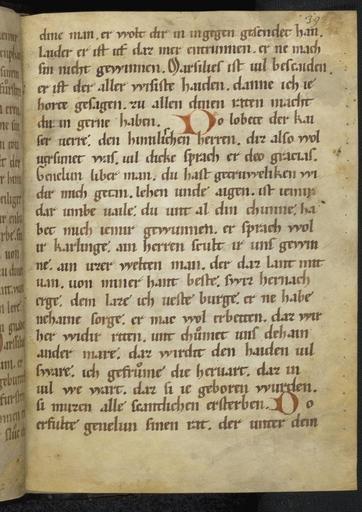 39
dine man. er wolt dir in ingegen gesendet han.
laider er ist uf daz mer entrunnen. er ne mach
sin nicht gewinnen. Marsilies ist uil bescaiden.
er ist der aller wisiste haiden. danne ich ie
horte gesagen. zu allen dinen raten macht
du in gerne haben. Do lobete der kai
ser uerre. den himilischen herren. dizs also wol
uersunet was. uil dicke sprach er deo gracias.
Genelun liber man. du hast getruweliken wi
der mich getan. lehen unde aigen. ist iemir
dar umbe uaile. du unt al din chunne. ha
bet mich iemir gewunnen. er sprach wol
ir karlinge. ain herren scult ir uns gewin
ne. ain uzer welten man. der daz lant mit
uan. uon miner hant beste. swiz hernach
erge. dem laze ich ueste burge. er ne habe
nehaine sorge. er mac wol erbeiten. daz wir
her widir riten. unt chumet uns dehain
ander mare. daz wirdit den haiden uil
sware. ich gefrume die heruart. daz in
uil we wart. daz si ie geboren wurden.
si muzen alle samtlichen ersterben. Do
erfulte genelun sinen rat. der unter dem